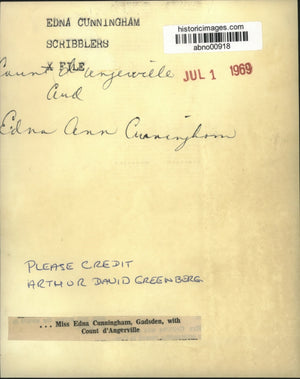 EDNA CUNNINGHAM
SCRIBBLERS
X FILE
historicimages.com
abno00918
Count d'Angerville
JUL 1 1969
And
Edna Ann Cunningham
PLEASE CREDIT
ARTHUR DAVID GREENBERG
... Miss Edna Cunningham, Gadsden, with
Count d'Angerville